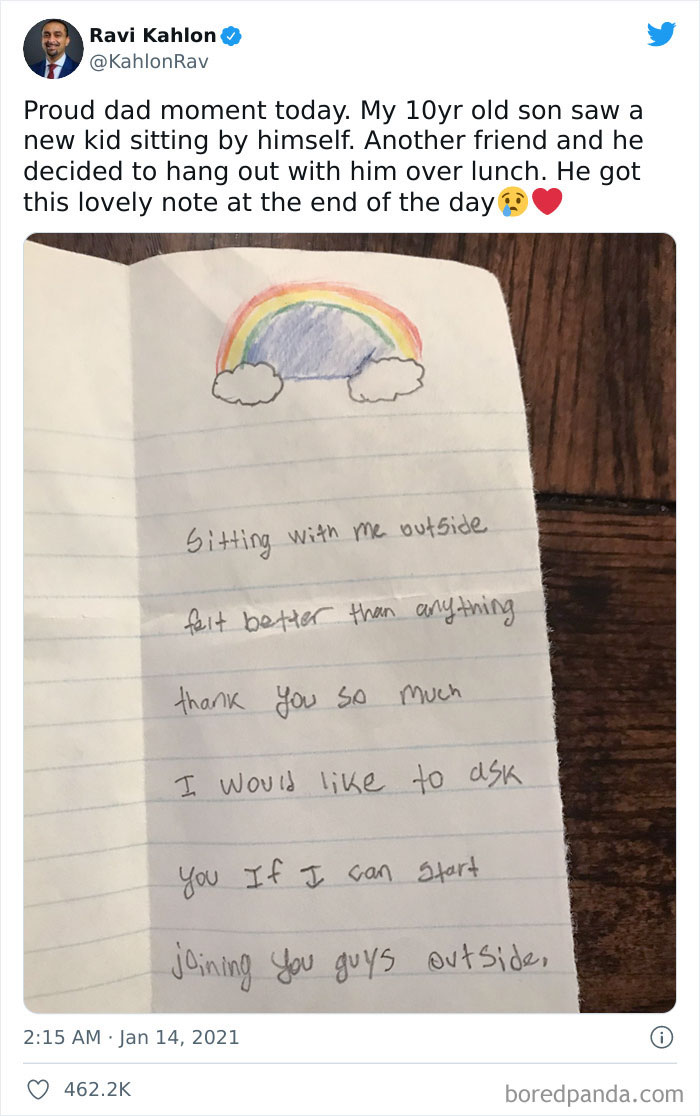 Ravi Kahlon
@KahlonRav
Proud dad moment today. My 10yr old son saw a
new kid sitting by himself. Another friend and he
decided to hang out with him over lunch. He got
this lovely note at the end of the day😢❤️
Sitting with me outside
felt better than anything
thank you so much
I would like to ask
you If I can start
joining you guys outside.
2:15 AM · Jan 14, 2021
462.2K
boredpanda.com